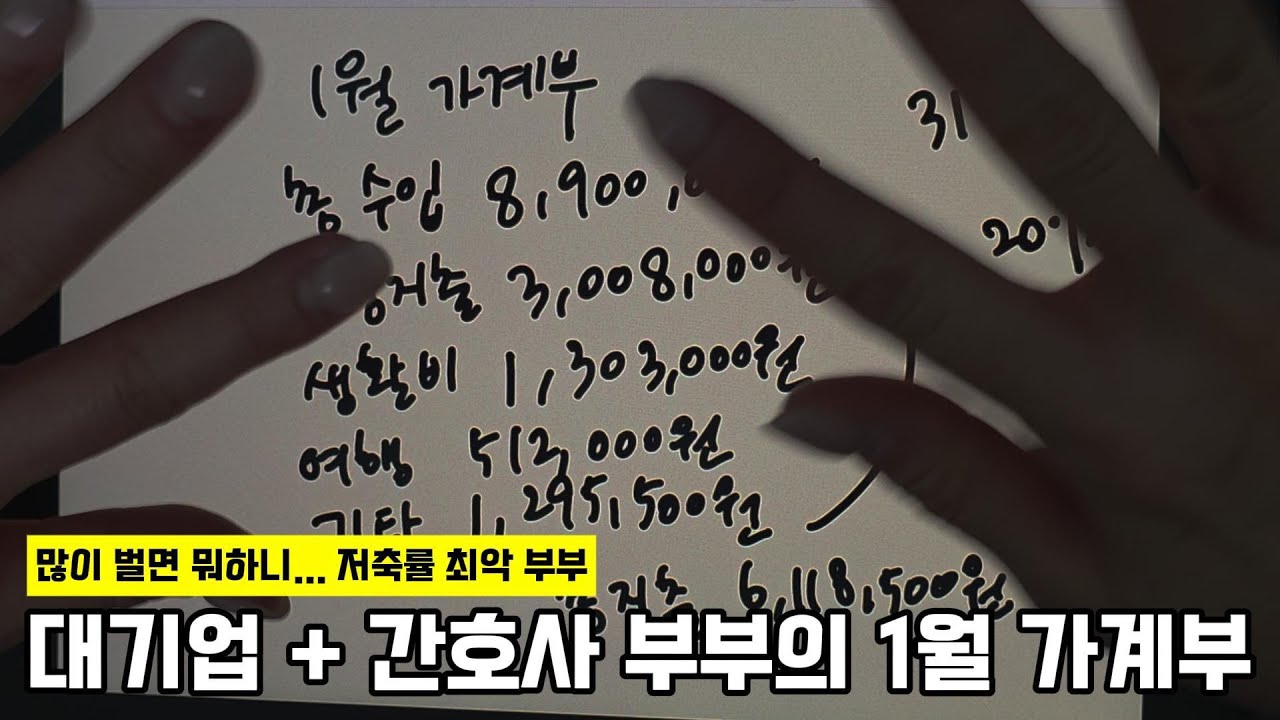 1월 가계부
31
총 수입 8,900,0
20%
지출 3,008,000원
생활비 1,303,000원
여행 512,000원
기타 1,295,500원
많이 벌면 뭐하니... 저축률 최악 부부
총 지출 6,118,500원
대기업 + 간호사 부부의 1월 가계부